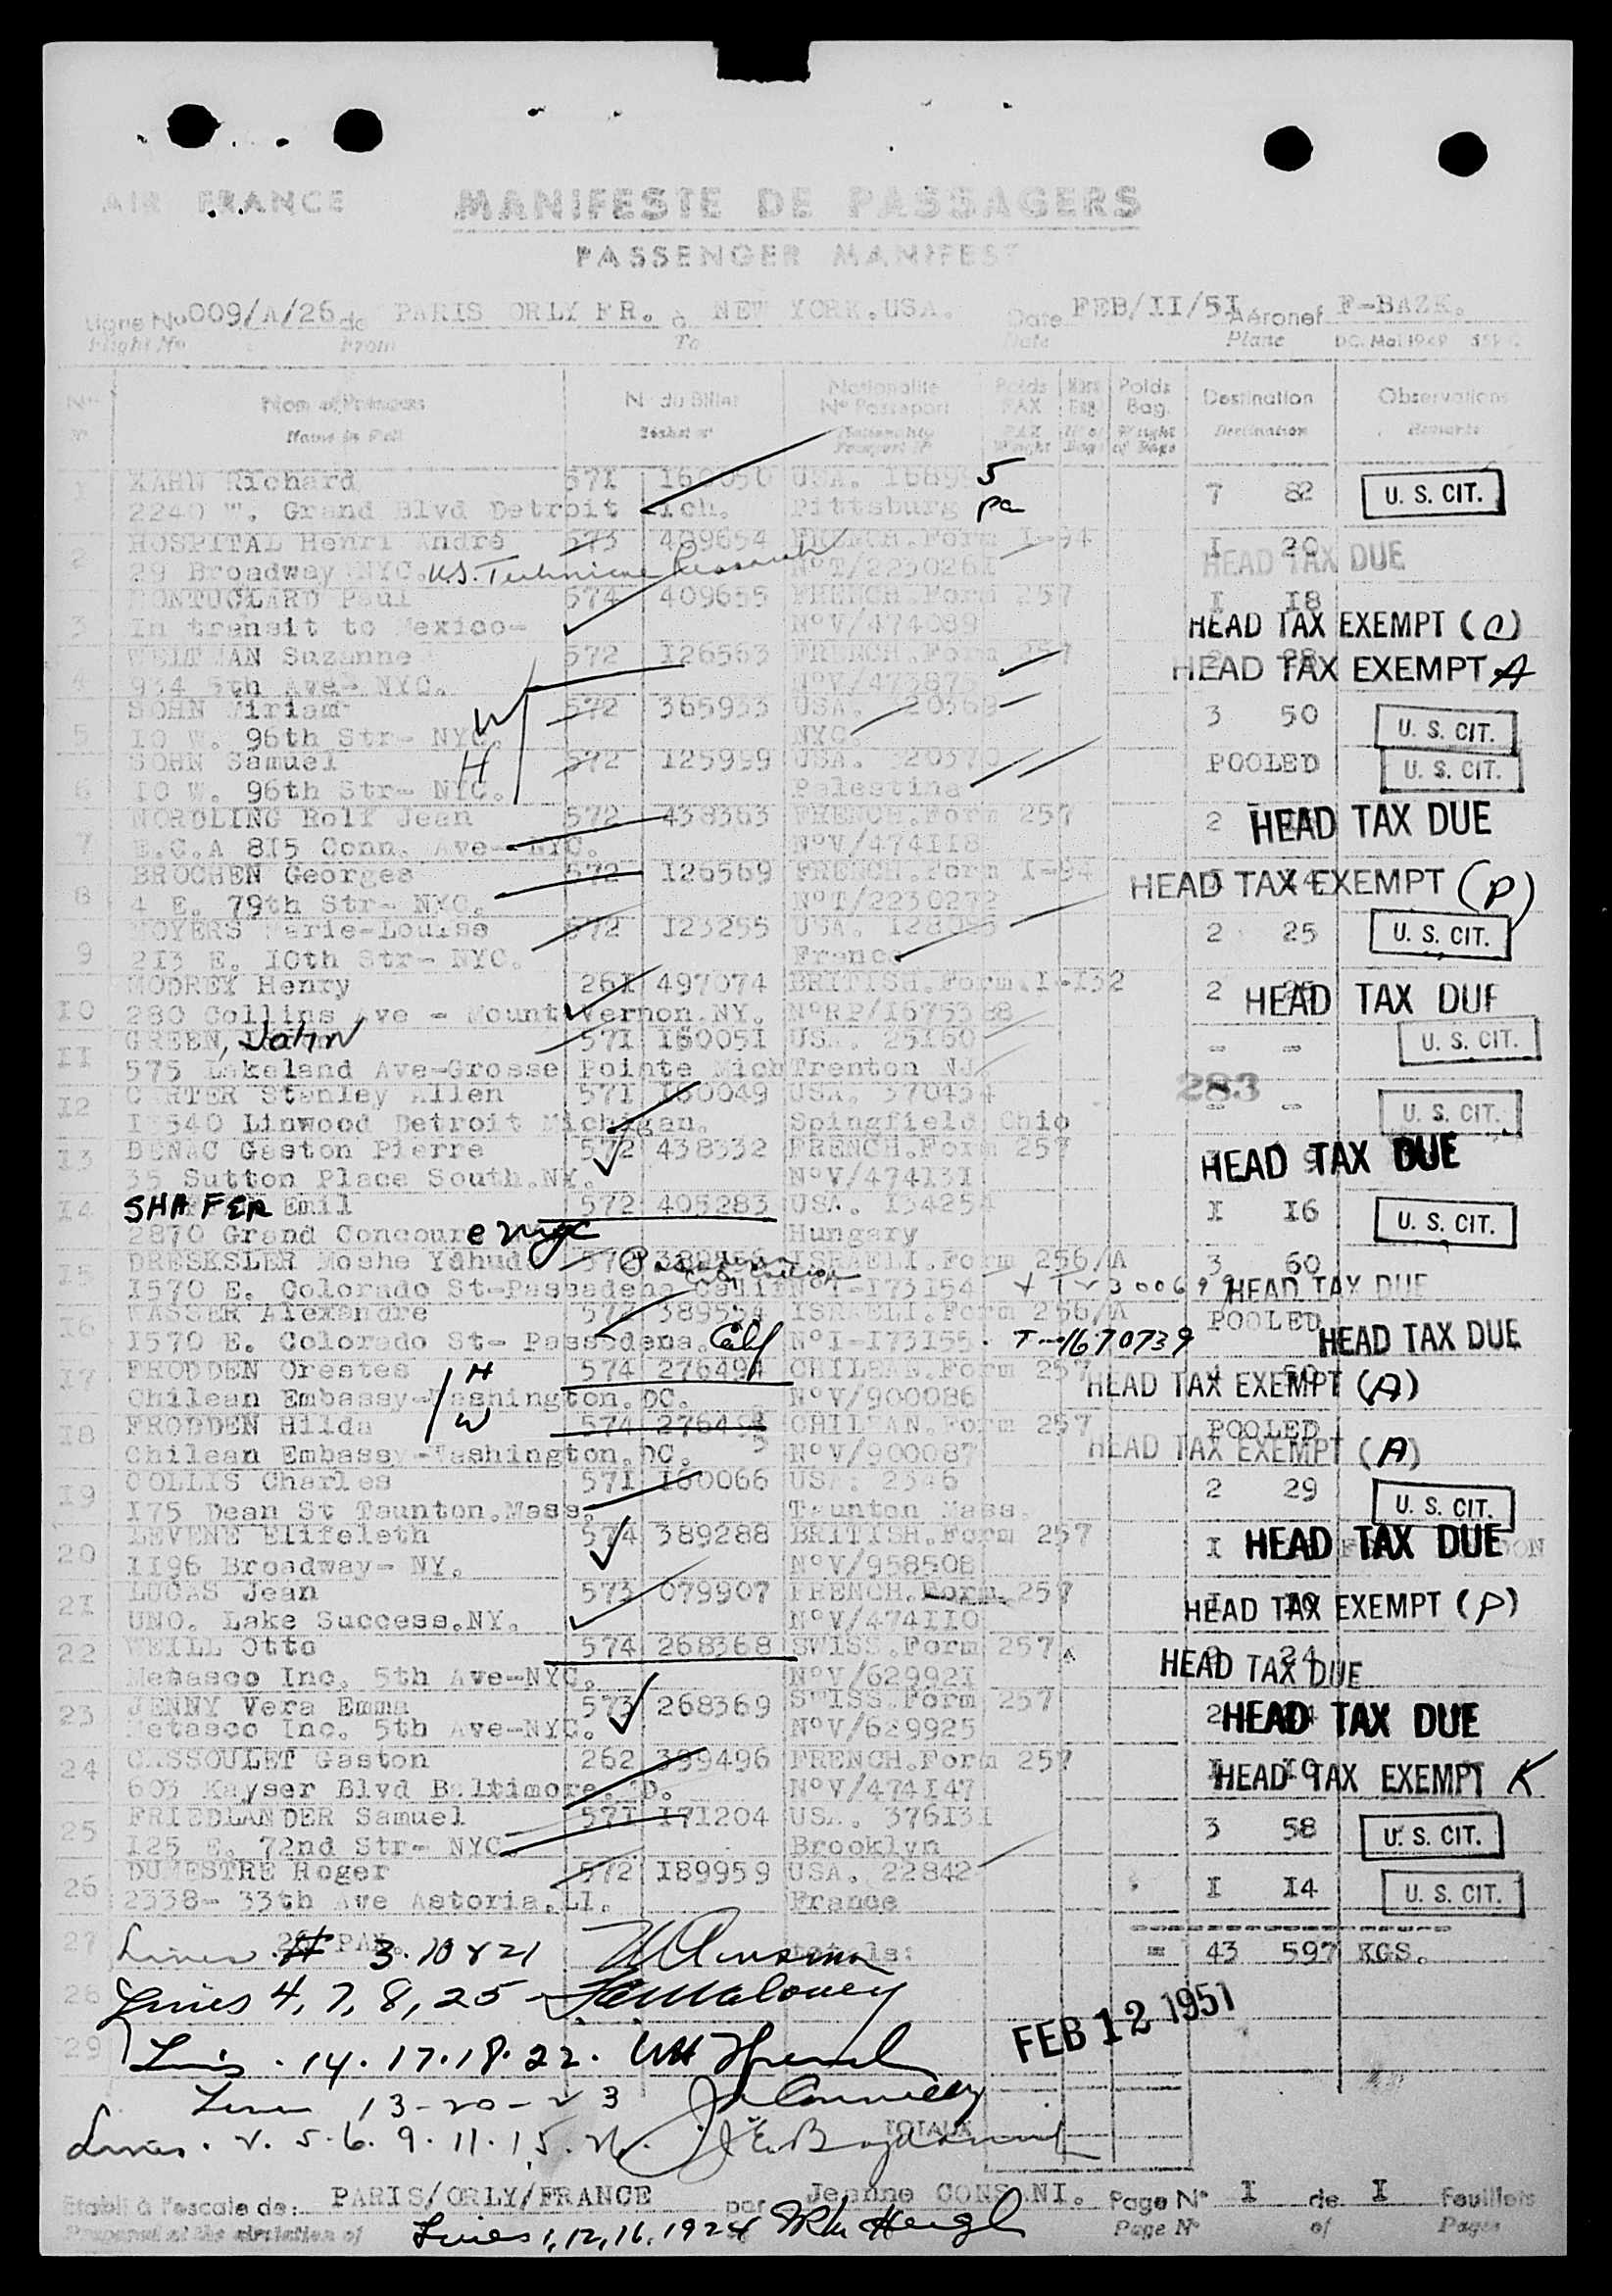 AIR FRANCE MANIFESTE DE PASSAGERS
PASSENGER MANIFEST
Ligne No 009/A/26 de PARIS ORLY FR. à NEW YORK.USA. Date FEB/II/5I Aéronef F-BAZK.
Flight No From To Date Plane DC. Mai 1949
No Nom et Prénoms N du Billet Nationalité Poids Nbre Poids Destination Observations
No Passeport PAX Bag. Bag.
Name in Full Ticket no Nationality PAX Nr of Weight Destination Remarks
Passport No Weight Bags of Bags
I Richard 571 USA. 5 7 82 U. S. CIT.
2240 W. Grand Blvd Detroit ich. Pittsburg pa
2 HOSPITAL Henri André 573 409654 FRENCH.Form I-94 I 20 HEAD TAX DUE
29 Broadway NYC. U.S. Technical Research N°T/223026I
Paul 574 409655 FRENCH.Form 257 I I8
3 In transit to Mexico- N°V/474089 HEAD TAX EXEMPT (C)
Suzanne 572 I26563 FRENCH.Form 257 HEAD TAX EXEMPT A
4 934 5th Ave- NYC.
SOHN Miriam W 572 365933 USA. 3 50 U. S. CIT.
5 IO W. 96th Str- NYC. NYC.
SOHN Samuel H 572 I25999 USA. POOLED U. S. CIT.
6 IO W. 96th Str- NYC. Palestina
NORDLING Rolf Jean 572 438363 FRENCH.Form 257 2 HEAD TAX DUE
7 E.C.A 8I5 Conn. Ave- NYC. N°V/474II8
BROCHEN Georges 572 I26569 FRENCH.Form I-94 HEAD TAX EXEMPT (P)
8 4 E. 79th Str- NYC. N°T/2230272
MOYERS Marie-Louise 572 I23255 USA. 2 25 U. S. CIT.
9 2I3 E. IOth Str- NYC. France
MODREY Henry 26I 497074 BRITISH.Form.I-I32 2 HEAD TAX DUE
IO 280 Collins Ave - Mount Vernon.NY. N°RP/
II GREEN, John 57I I6005I USA. 25I60 - - U. S. CIT.
575 Lakeland Ave-Grosse Pointe Mich Trenton NJ
283
I2 CARTER Stanley Allen 57I I60049 USA. 370454 - - U. S. CIT.
Linwood Detroit Michigan. Spingfield Ohio
I3 BENAC Gaston Pierre 572 438332 FRENCH.Form 257 HEAD TAX DUE
35 Sutton Place South.NY. N°V/474I3I
I4 SHAFER Emil 572 405283 USA. I34254 I I6 U. S. CIT.
2870 Grand Concourse NYC Hungary
I5 DRESKSLER Moshe Yahuda ISRAELI.Form 256/A 3 60
I570 E. Colorado St-Passadena Calif N°I-I73I54 HEAD TAX DUE
I6 WASSER Alexandre 572 389554 ISRAELI.Form 256/A POOLED
I570 E. Colorado St- Passadena. Calif N°I-I73I55. T-1670739 HEAD TAX DUE
I7 FRODDEN Orestes H 574 276494 CHILEAN.Form 257 HEAD TAX EXEMPT (A)
Chilean Embassy-Washington.DC. N°V/900086
I8 FRODDEN Hilda W 574 CHILEAN.Form 257 POOLED
Chilean Embassy-Washington.DC. N°V/900087 HEAD TAX EXEMPT (A)
I9 COLLIS Charles 57I I60066 USA. 2346 2 29 U. S. CIT.
I75 Dean St Taunton.Mass. Taunton Mass.
20 LEVENE Elifeleth 574 389288 BRITISH.Form 257 I HEAD TAX DUE
II96 Broadway- NY. N°V/958508
2I LUCAS Jean 573 079907 FRENCH.Form.257 HEAD TAX EXEMPT (P)
UNO. Lake Success.NY. N°V/474IIO
22 WEILL Otto 574 268368 SWISS.Form 257 24 HEAD TAX DUE
Metasco Inc. 5th Ave-NYC. N°V/62992I
23 JENNY Vera Emma 573 268369 SWISS.Form 257 2 HEAD TAX DUE
Metasco Inc. 5th Ave-NYC. N°V/629925
24 CASSOULET Gaston 262 399496 FRENCH.Form 257 HEAD TAX EXEMPT K
603 Kayser Blvd Baltimore. MD. N°V/474I47
25 FRIEDLANDER Samuel 57I I7I204 USA. 376I3I 3 58 U. S. CIT.
I25 E. 72nd Str- NYC. Brooklyn
26 DUMESTRE Roger 572 I89959 USA. 22842 I I4 U. S. CIT.
2338- 33th Ave Astoria.LI. France
27 Lines # 3.10 & 21 totals: = 43 597 KGS.
28 Lines 4, 7, 8, 25 - Maloney
FEB 12 1951
29 Lines . 14. 17. 18. 22.
Lines 13-20-23 Connelly
Lines. 2. 5. 6. 9. 11. 15. 26. TOTAUX
Etabli à l'escale de: PARIS/ORLY/FRANCE par Jeanne CONSANI. Page N° I de I Feuillets
Prepared at the station of Lines 1, 12, 16, 19 24 Page N° of Pages